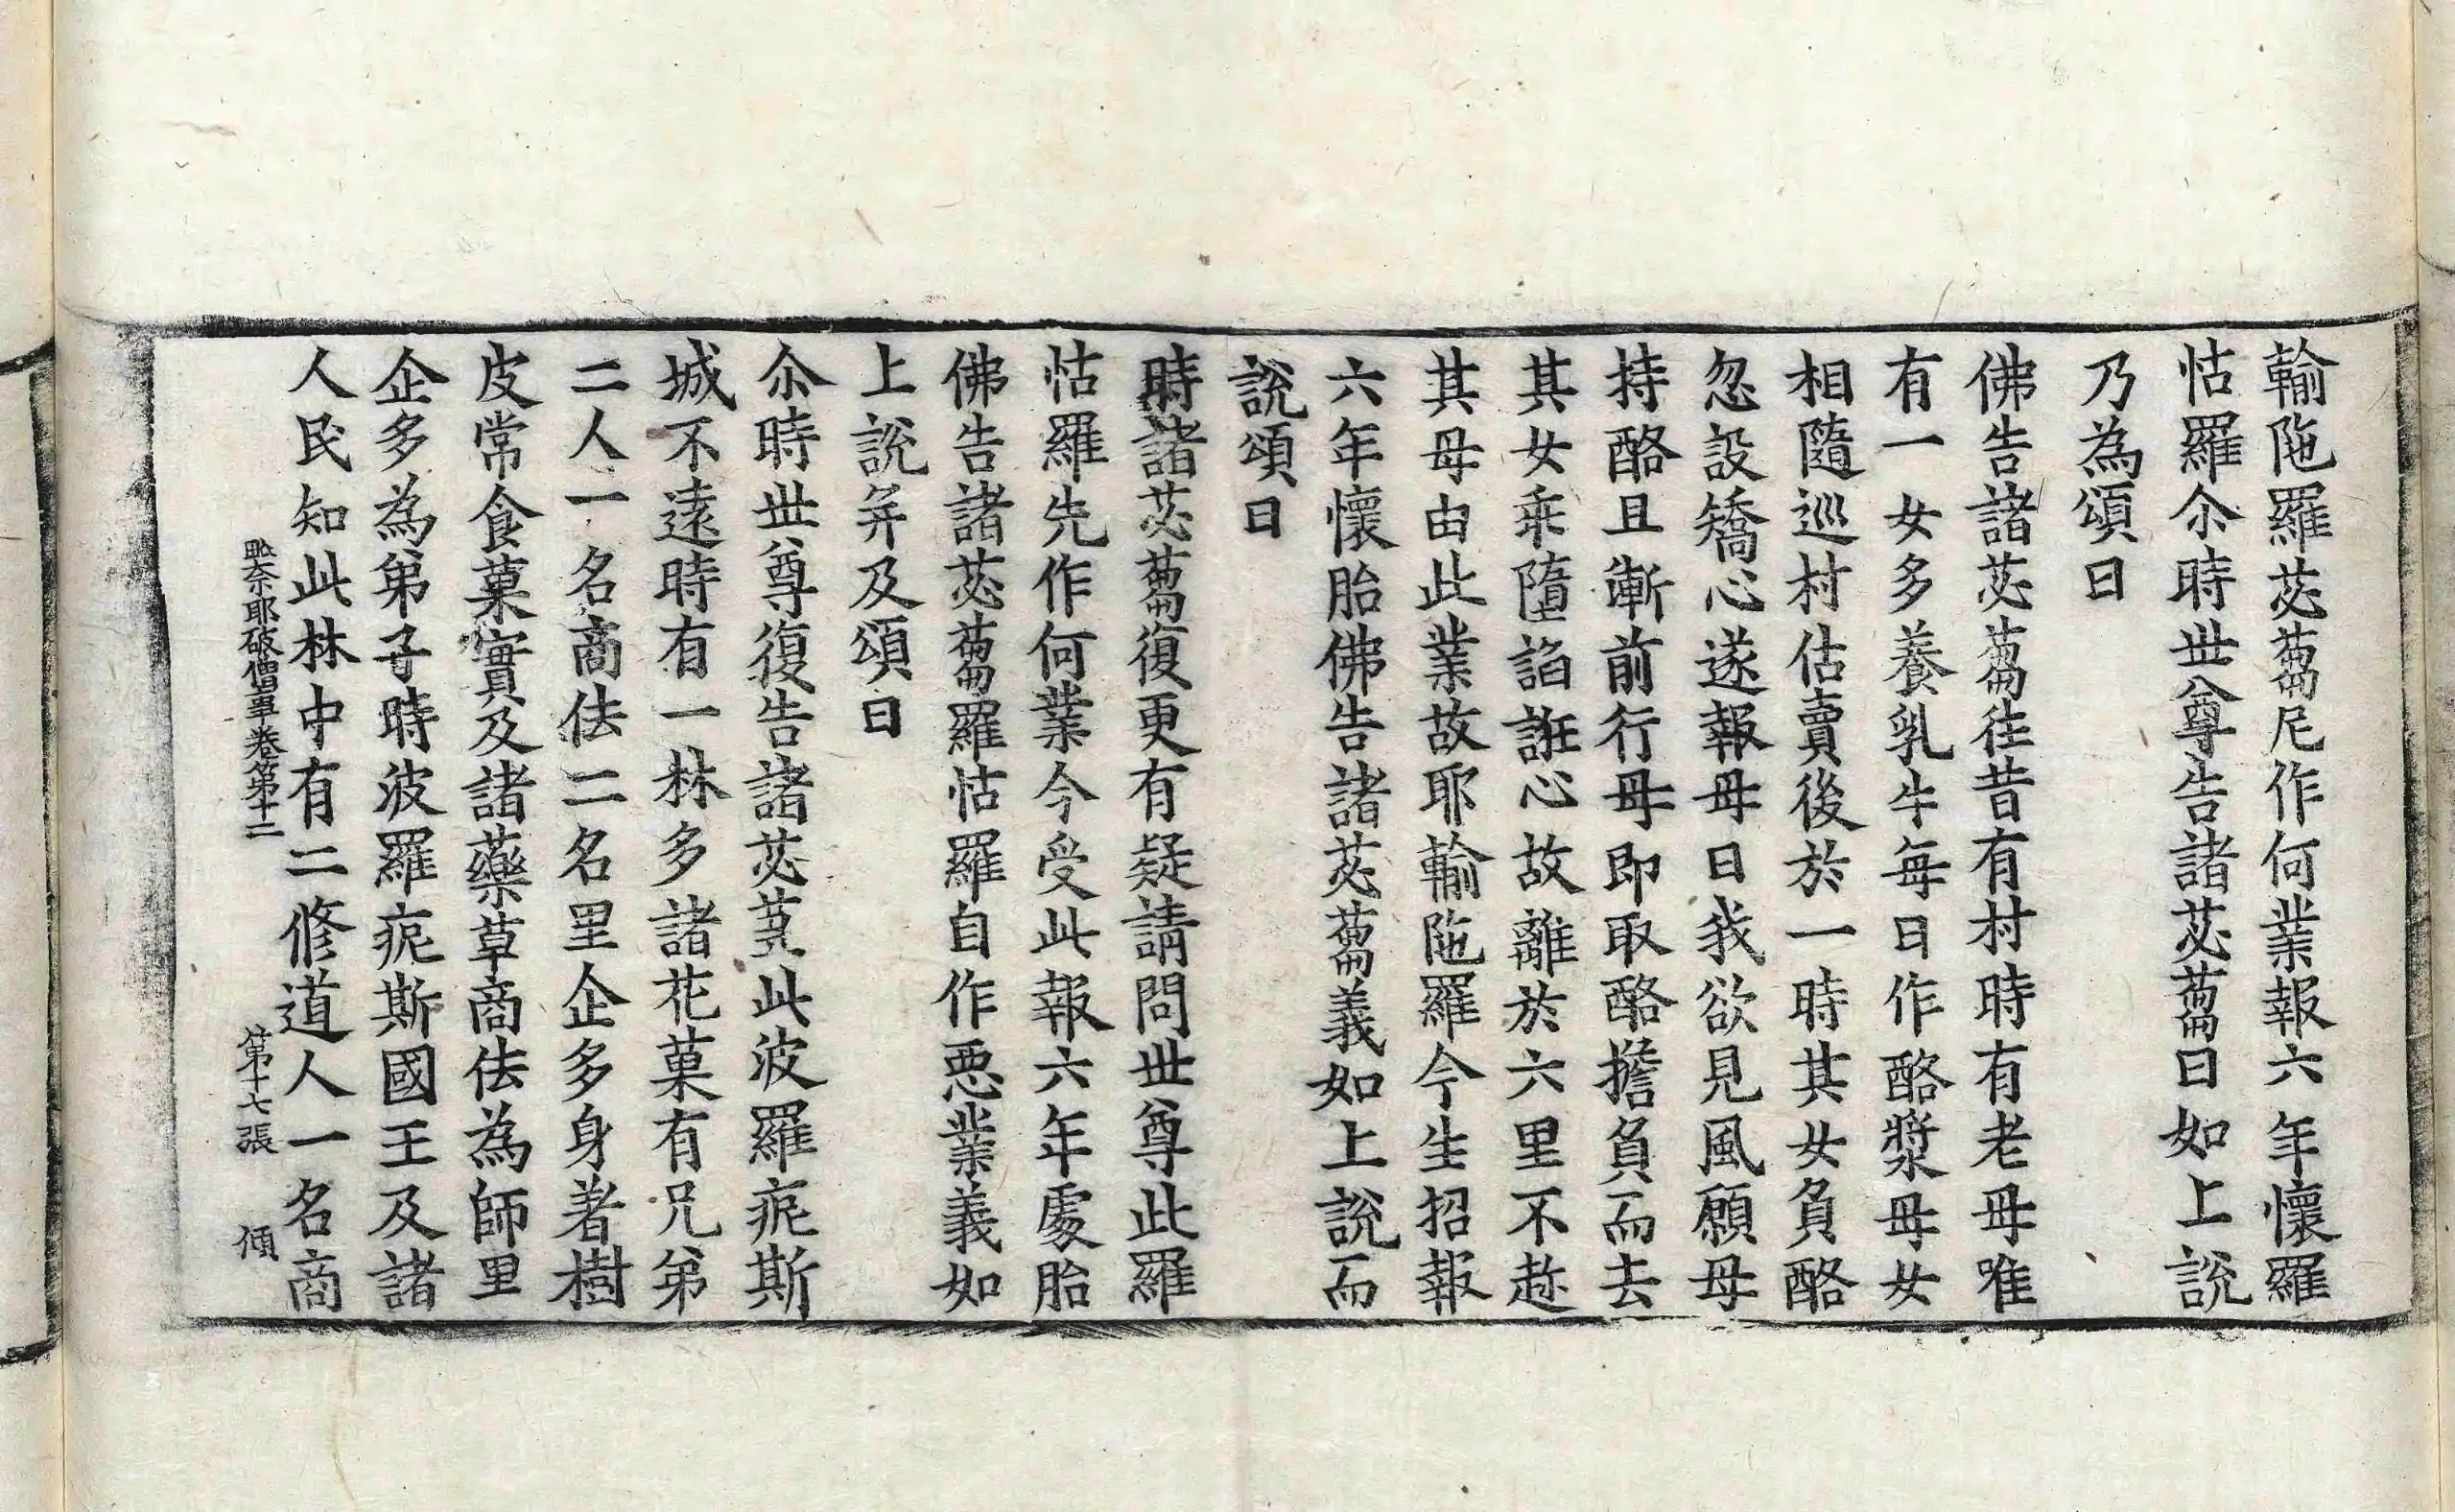 輸陁羅苾蒭尼作何業報六年懷羅
怙羅尒時世尊告諸苾蒭曰如上說
乃為頌曰
佛告諸苾蒭往昔有村時有老母唯
有一女多養乳牛每日作酪漿母女
相隨巡村估賣後於一時其女負酪
忽設矯心遂報母曰我欲見風願母
持酪且漸前行母即取酪擔負而去
其女乘墮諂誑心故離於六里不趂
其母由此業故耶輸陁羅今生招報
六年懷胎佛告諸苾蒭義如上說而
說頌曰
時諸苾蒭復更有疑請問世尊此羅
怙羅先作何業今受此報六年處胎
佛告諸苾蒭羅怙羅自作惡業義如
上說并及頌曰
尒時世尊復告諸苾蒭此波羅痆斯
城不遠時有一林多諸花菓有兄弟
二人一名商佉二名里企多身著樹
皮常食菓實及諸藥草商佉為師里
企多為弟子時波羅痆斯國王及諸
人民知此林中有二修道人一名商
毗奈耶破僧事卷第十二 第十七張 傾